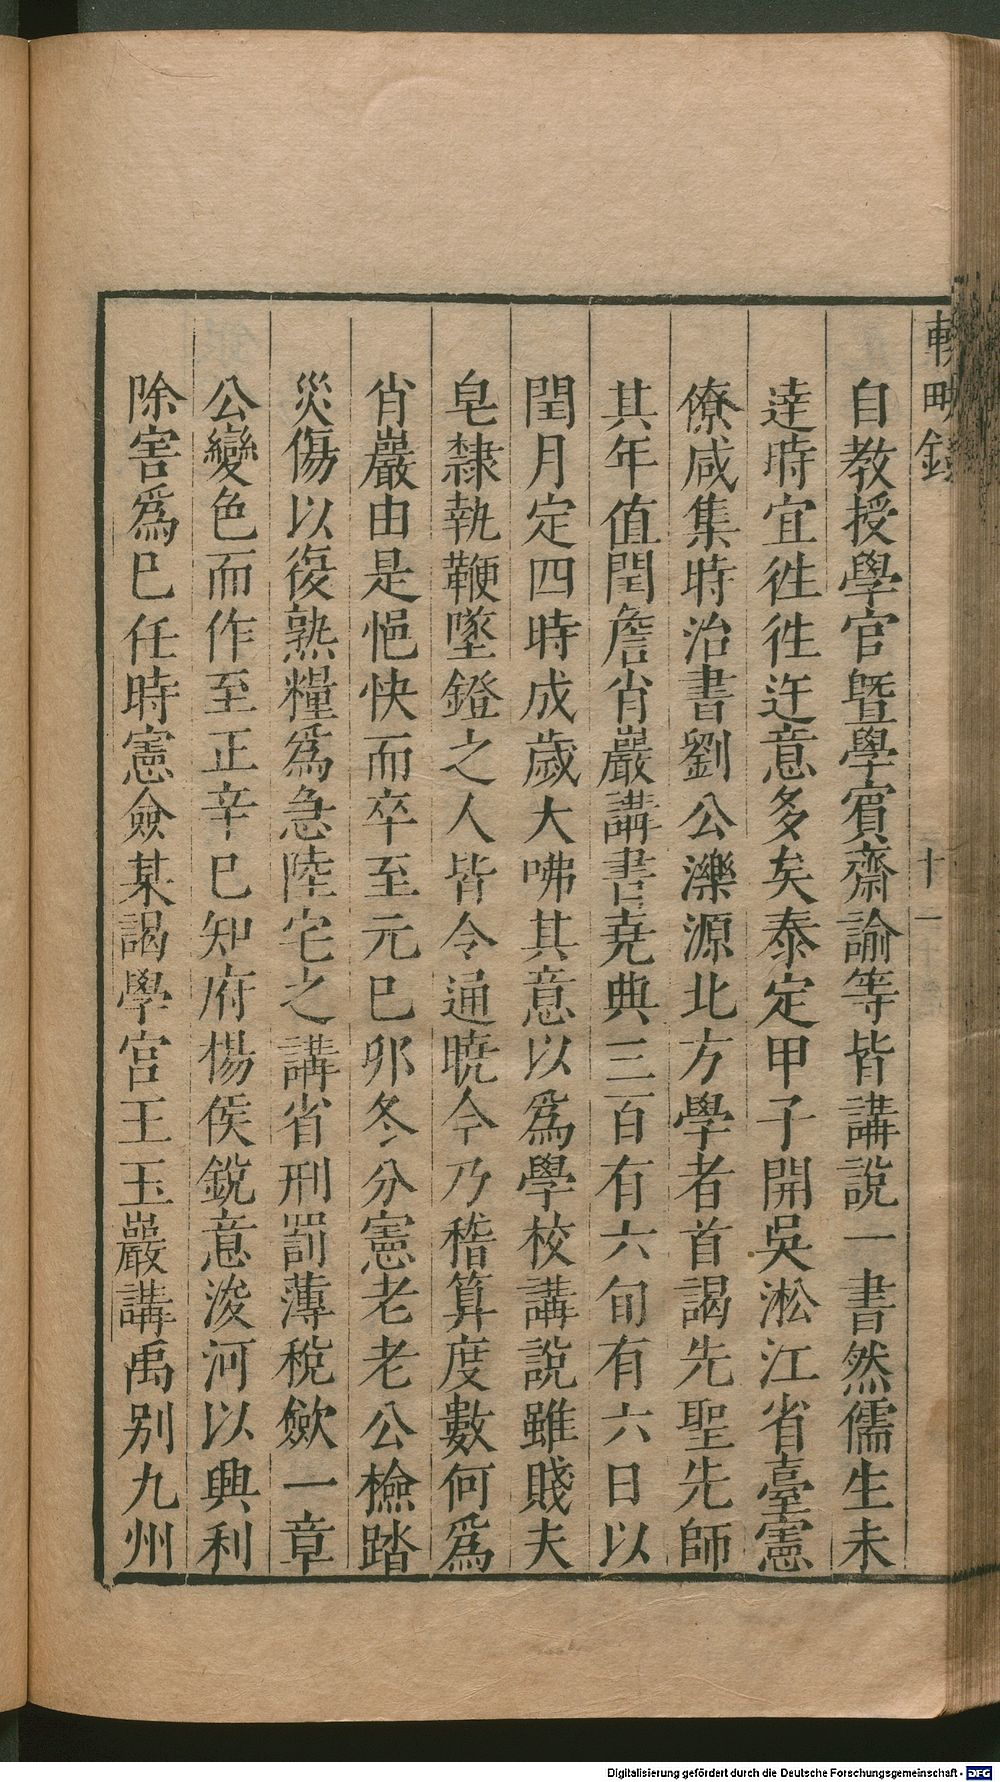 輟畊錄
十一
自教授學官曁學賓齋諭等皆講說一書然儒生未
達時宜徃徃迕意多矣泰定甲子開吳淞江省臺憲
僚咸集時治書劉公濼源北方學者首謁先聖先師
其年值閏詹肖巖講書尭典三百有六旬有六日以
閏月定四時成歲大咈其意以爲學校講說雖賤夫
皂隸執鞭墜鐙之人皆令通曉今乃稽算度數何爲
肖巖由是悒怏而卒至元巳夘冬分憲老老公檢踏
災傷以復熟糧爲急陸宅之講省刑罰薄稅歛一章
公變色而作至正辛巳知府楊侯銳意浚河以興利
除害爲巳任時憲僉某謁學宮王玉巖講禹别九州
Digitalisierung gefördert durch die Deutsche Forschungsgemeinschaft - DFG